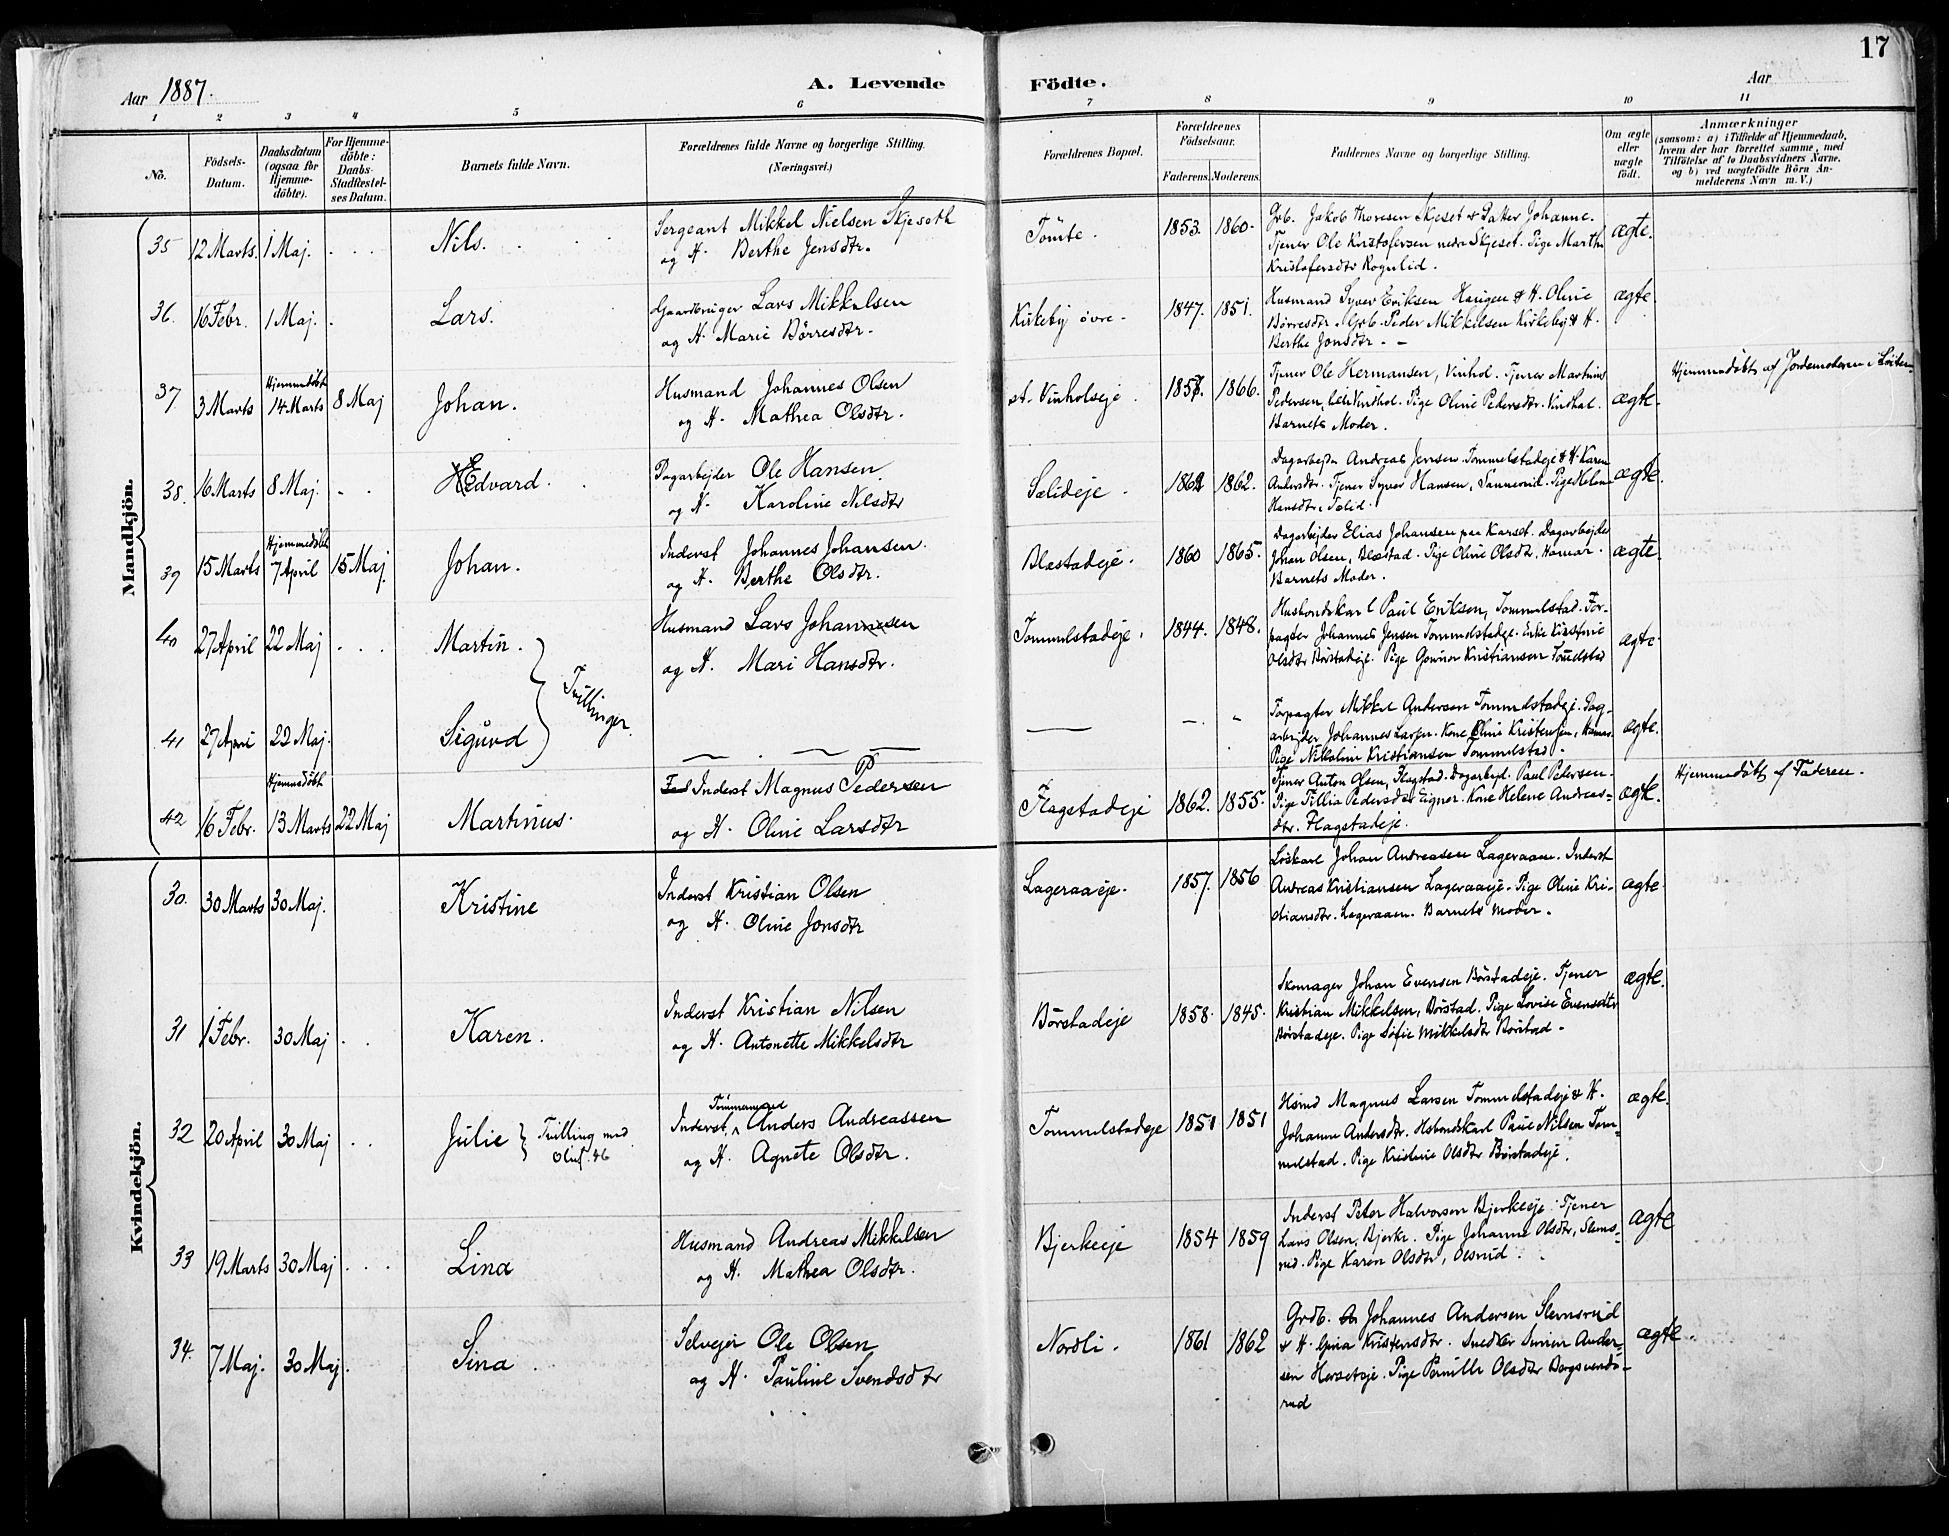 17
Aar 1887.
A. Levende Födte.
Aar
1 2 3 4 5 6 7 8 9 10 11
No.
Födsels-Datum.
Daabsdatum (ogsaa for Hjemme-döbte).
For Hjemme-döbte: Daabs-Stadfæstel-ses Datum.
Barnets fulde Navn.
Forældrenes fulde Navne og borgerlige Stilling.
(Næringsvei.)
Forældrenes Bopæl.
Forældrenes Födselsaar.
Faderens. Moderens.
Faddernes Navne og borgerlige Stilling.
Om ægte eller uægte födt.
Anmærkninger
(saasom: a) i Tilfælde af Hjemmedaab,
hvem der har forrettet samme, med
Tilföielse af to Daabsvidners Navne.
og b) ved uægtefödte Börn An-
melderens Navn m. V.)
Mandkjön.
35 12 Marts. 1 Maj. Nils.
Sergeant Mikkel Nielsen Skjeseth
og H. Berthe Jensdtr.
Tömte. 1853. 1860.
Grb. Jakob Thoresen Skjeset & Datter Johanne.
Tjener Ole Kristofersen nedre Skjeset. Pige Marthe
Kristofersdtr Rognlid.
ægte.
36. 16 Febr. 1 Maj. Lars.
Gaardbruger Lars Mikkelsen
og H. Marie Börresdtr.
Kirkeby övre. 1847. 1851.
Husmand Syver Eriksen Haugen & H. Oline
Börresdtr. Grb. Peder Mikkelsen Kirkeby & H.
Berthe Jonsdtr.
ægte
37. 3 Marts Hjemmedöbt 14 Marts 8 Maj Johan.
Husmand Johannes Olsen
og H. Mathea Olsdtr.
st. Vinholseje. 1857. 1866.
Tjener Ole Hermansen, Vinhol. Tjener Martinus
Pedersen, lille Vindhol. Pige Oline Pedersdtr. Vindhol.
Barnets Moder.
ægte.
Hjemmedöbt af Jordemoderen i Löiten
38. 16 Marts 8 Maj. Edvard.
Dagarbejder Ole Hansen
og H. Karoline Nilsdtr
Sælideje. 1862 1862.
Dagarbejder Andreas Jensen Tommelstadeje & H. Karen
Andersdtr. Tjener Syver Hansen, Sannerud. Pige Helene
Hansdtr. Sælid.
ægte.
39 15 Marts Hjemmedöbt 7 April 15 Maj Johan.
Inderst Johannes Johansen.
og H. Berthe Olsdtr.
Blæstadeje. 1860 1865.
Dagarbejder Elias Johansen paa Karset. Dagarbejder
Johan Olsen, Blæstad. Pige Oline Olsdtr, Hamar.
Barnets Moder.
ægte.
40 27 April 22 Maj Martin.
Husmand Lars Johannesen
og H. Mari Hansdtr.
Tommelstadeje. 1844. 1848.
Husbondskarl Paul Eriksen, Tommelstad. For-
pagter Johannes Jensen Tommelstadeje. Enke Kirstine
Olsdtr Börstadeje. Pige Gunnor Kristiansen Tommelstad
ægte
Tvillinger
41 27 April 22 Maj. Sigurd
Forpagter Mikkel Andersen Tommelstadeje. Dag-
arbejder Johannes Larsen. Kone Oline Kristensen, Hamar.
Pige Nikoline Kristiansen Tommelstad.
ægte.
42 16 Febr. Hjemmedöbt 13 Marts 22 Maj Martinus.
Inderst Magnus Pedersen
og H. Oline Larsdtr
Flagstadeje 1862. 1855.
Tjener Anton Olsen, Flagstad. Dagarbejd. Paul Petersen.
Pige Tillia Pedersdtr Eigner. Kone Helene Andreas-
dtr. Flagstadeje.
ægte.
Hjemmedöbt af Faderen.
Kvindekjön.
30. 30 Marts 30 Maj. Kristine
Inderst Kristian Olsen
og H. Oline Jonsdtr
Lageraaeje. 1857. 1856
Löskarl Johan Andreasen Lageraaen. Inderst
Andreas Kristiansen Lageraaeje. Pige Oline Kri-
stiansdtr. Lageraaen. Barnets Moder.
ægte
31 1 Febr. 30 Maj Karen.
Inderst Kristian Nilsen
og H. Antonette Mikkelsdtr
Börstadeje 1858. 1845.
Skomager Johan Evensen Börstadeje. Tjener
Kristian Mikkelsen, Börstad. Pige Lovise Evensdtr
Börstadeje. Pige Sofie Mikkelsdtr Börstad.
ægte.
32 20 April 30 Maj Julie } Tvilling med Oluf. 46
Inderst, Tömmermand Anders Andreassen
og H. Agnete Olsdtr.
Tommelstadeje 1851 1851
Hsmd Magnus Larsen Tommelstadeje & H.
Johanne Andersdtr. Hsbondskarl Paul Nilsen Tom-
melstad. Pige Kristine Olsdtr Börstadeje.
ægte.
33 19 Marts 30 Maj Lina
Husmand Andreas Mikkelsen
og H. Mathea Olsdtr.
Bjerkeeje 1854 1859
Inderst Peter Halvorsen Bjerkeeje. Tjener
Lars Olsen, Bjerke. Pige Johanne Olsdtr, Slems-
rud. Pige Karen Olsdtr, Olsrud.
ægte
34. 7 Maj. 30 Maj. Sina
Selvejer Ole Olsen
og H. Pauline Svendsdtr
Nordli. 1861 1862
Grdb. Johannes Andersen Slemsrud
& H. Gina Kristensdtr. Snedker Simen Ander-
sen Hersetseje. Pige Pernille Olsdtr Bergsvends-
rud
ægte.